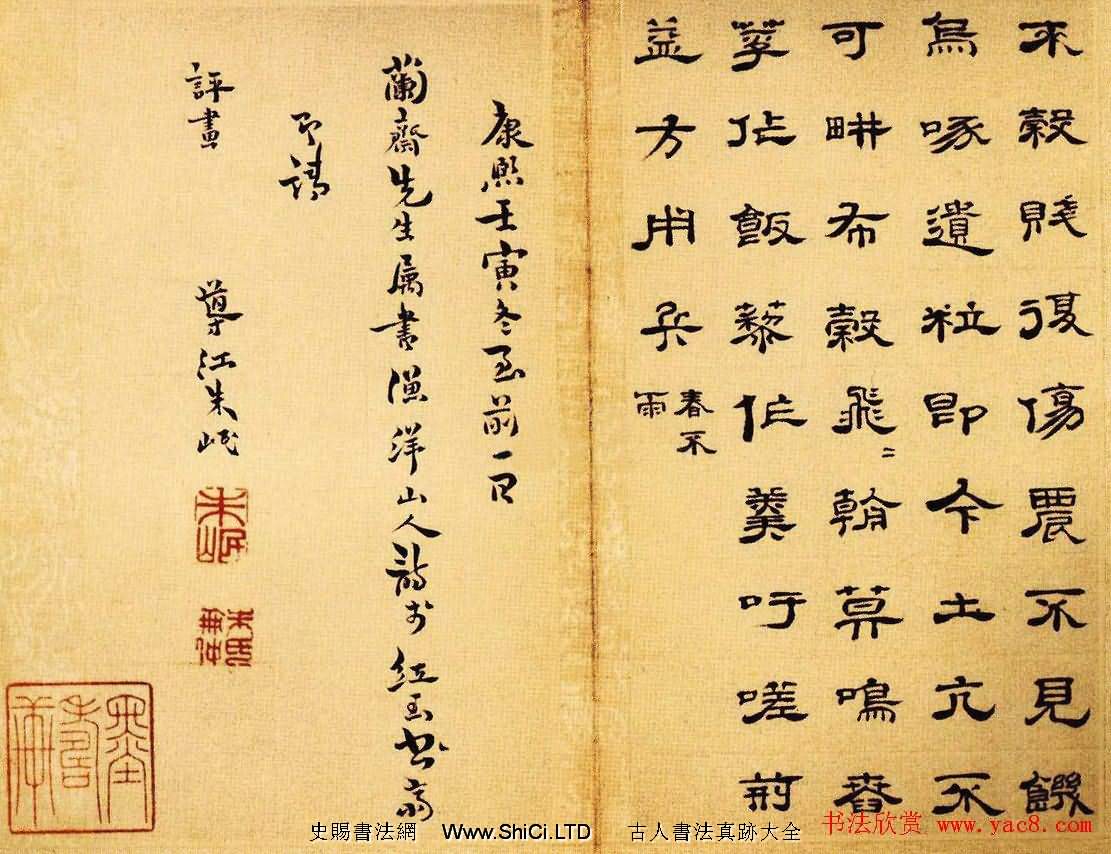 來穀賤復傷農不見饑
烏啄遺粒即今土亢不
可畊布穀飛〻朝莫鳴舂
莩作飯藜作羹吁嗟荊
益方用兵 春不雨
康熙壬寅冬至前一日
蘭齋先生屬書漁洋山人詩於紅玉書齋
即請
評畫 導江朱岷
朱岷
史賜書法網 Www.ShiCi.LTD 古人書法真跡大全
书法欣赏 www.yac8.com